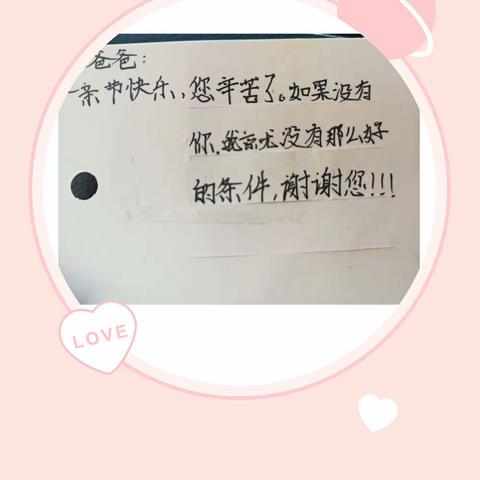 爸爸:
亲节快乐,您辛苦了。如果没有
你,我就没有那么好
的条件,谢谢您!!!
LOVE